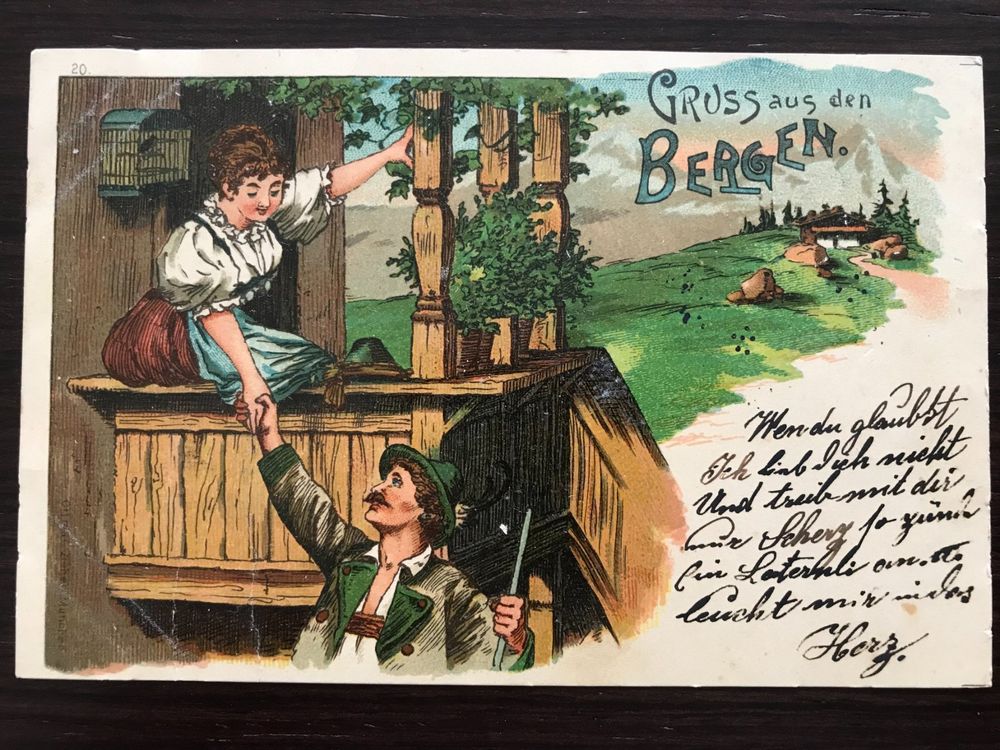 20.
GRUSS aus den
BERGEN.
Wen du glaubst
Ich lieb dich nicht
Und treib mit dir
nur Scherz so zünd
ein Laternli an u.
leucht mir in das
Herz.